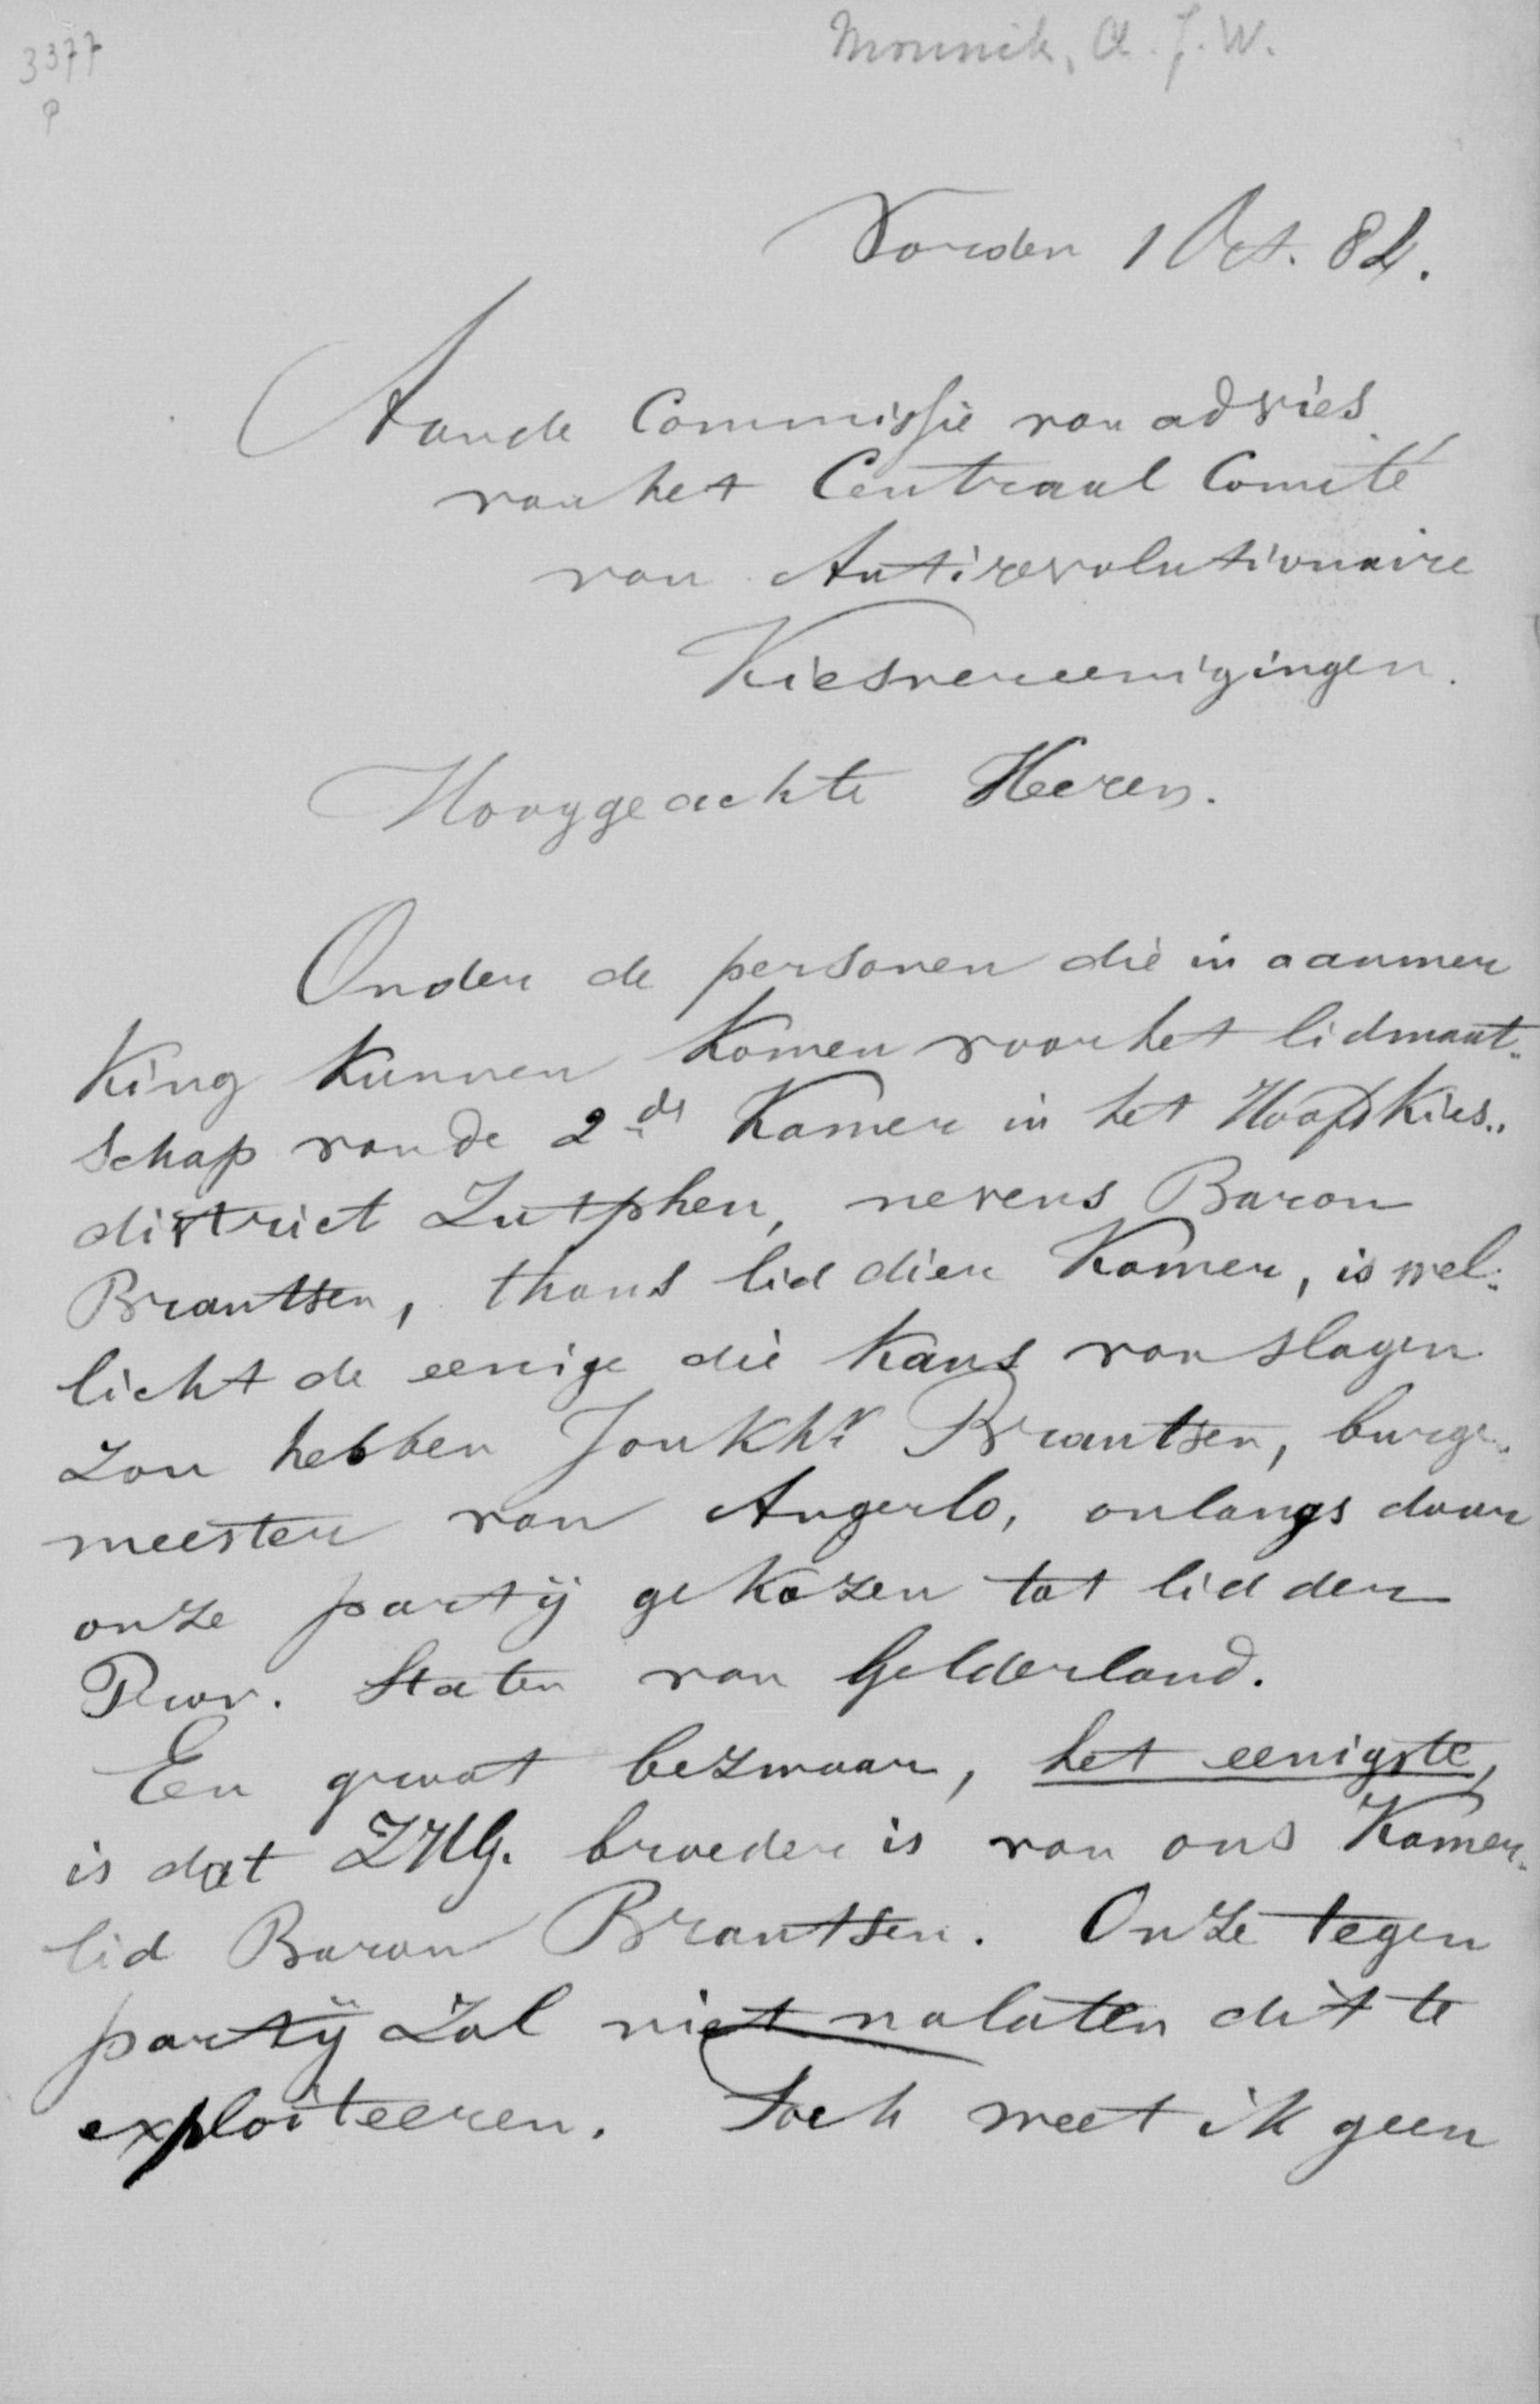 3377
P
Mounik, A. J. W.
Vorden 1 Oct. 84.
Aan de Commissie van advies
van het Centraal Comité
van Antirevolutionaire
Kiesvereenigingen.
Hooggeachte Heeren.
Onder de personen die in aanmer
king kunnen komen voor het lidmaat-
schap van de 2de Kamer in het Hoofdkies-
district Zutphen, nevens Baron
Brantsen, thans lid dier Kamer, is wel-
licht de eenige die kans van slagen
zou hebben Jonkhr Brantsen, burge-
meester van Angerlo, onlangs door
onze partij gekozen tot lid der
Prov. Staten van Gelderland.
Een groot bezwaar, het eenigste,
is dat ZHG. broeder is van ons Kamer-
lid Baron Brantsen. Onze tegen
partij zal niet nalaten dit te
exploiteeren. Toch weet ik geen